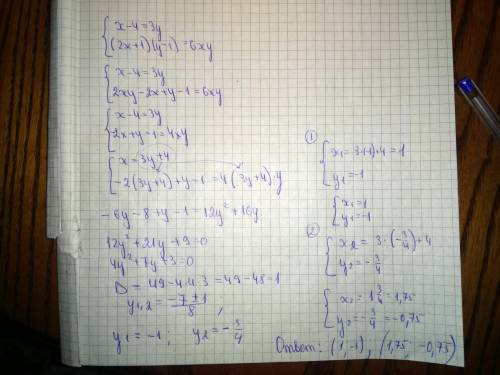 { x-4=3y
(2x+1)(y-1)=6xy
{ x-4=3y
2xy-2x+y-1=6xy
{ x-4=3y
2x+y-1=4xy
{ x=3y+4
-2(3y+4)+y-1=4(3y+4)·y
-6y-8+y-1=12y²+16y
12y²+21y+9=0
4y²+7y+3=0
D=49-4·4·3=49-48=1
y₁,₂=(-7±1)/8;
y₁=-1; y₂=-3/4
①
{ x₁=3·(-1)+4=1
y₁=-1
{ x₁=1
y₁=-1
②
{ x₂=3·(-3/4)+4
y₂=-3/4
{ x₂=1 3/4=1,75
y₂=-3/4=-0,75
Ответ: (1,-1); (1,75; -0,75)